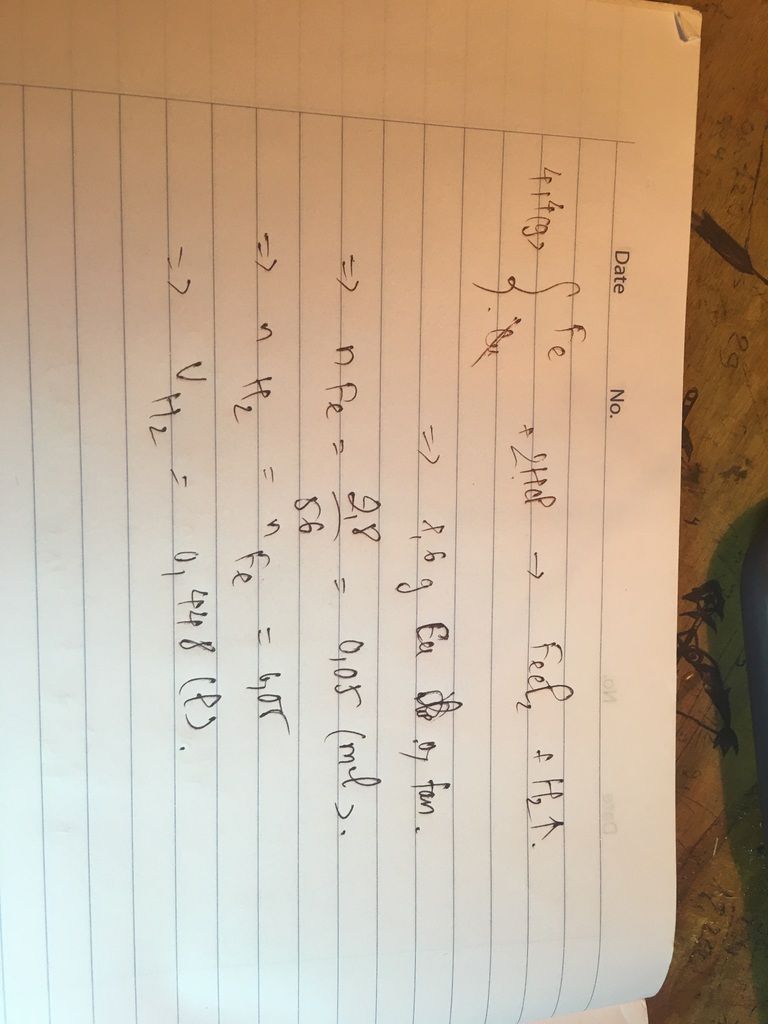 Date No.
4,4(g) { Fe + 2HCl → FeCl₂ + H₂↑.
Cu
=> 1,6 g Cu ko p/ tan.
=> n Fe = 2,8/56 = 0,05 (mol).
=> n H₂ = n Fe = 0,05
=> V H₂ = 0,448 (l).